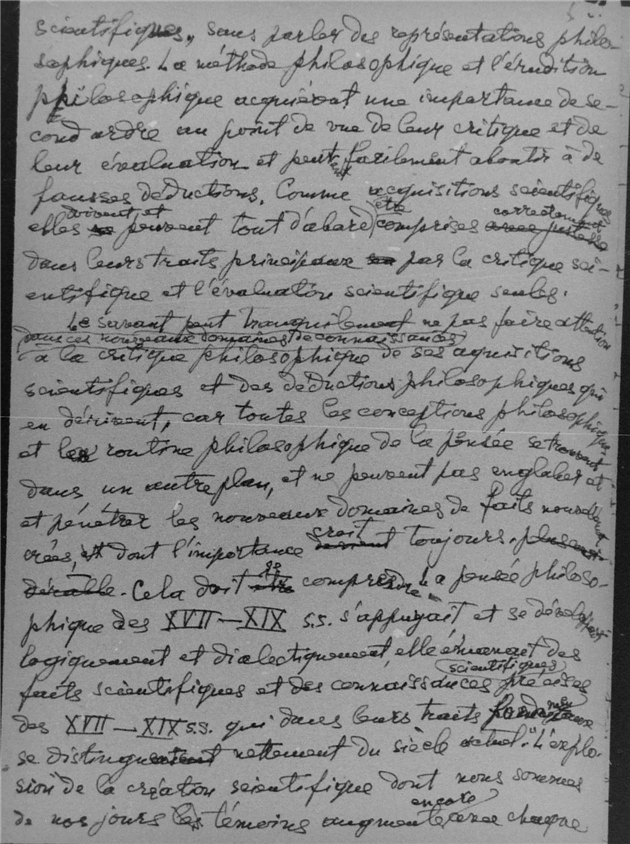 scientifiques, sans parler des représentations philo-
sophiques. La méthode philosophique et l'érudition
philosophique acquièrent une importance de se-
cond ordre au point de vue de leur critique et de
leur évaluation et peut facilement aboutir à de
fausses déductions. Comme acquisitions scientifiques
elles doivent et peuvent tout d'abord être comprises correctement avec justesse
dans leurs traits principaux par la critique sci-
entifique et l'évaluation scientifique seules.
Le savant peut tranquilement ne pas faire attention
dans ces nouveaux domaines de connaissances
à la critique philosophique de ses aquisitions
scientifiques et des déductions philosophiques qui
en dérivent, car toutes les conceptions philosophiques
et la routine philosophique de la pensée se trouvent
dans un autre plan, et ne peuvent pas englober et
et pénétrer les nouveaux domaines de faits nouvellement
créés, dont l'importance croit devient toujours.
Cela doit se comprendre. La pensée philoso-
phique des XVII–XIX s.s. s'appuyait et se développait
logiquement et dialectiquement, elle émanait des
faits scientifiques et des connaissances scientifiques précises
des XVII–XIX s.s. qui dans leurs traits
se distinguaient nettement du siècle actuel. L'explo-
sion de la création scientifique dont nous sommes
de nos jours les témoins augmente encore avec chaque